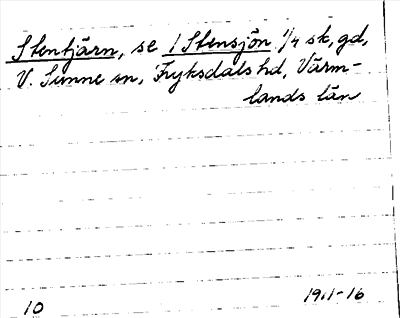 Stentjärn, se 1 Stensjön 1/4 sk, gd,
V. Sunne sn, Fryksdals hd, Värm-
lands län
1911-16
10